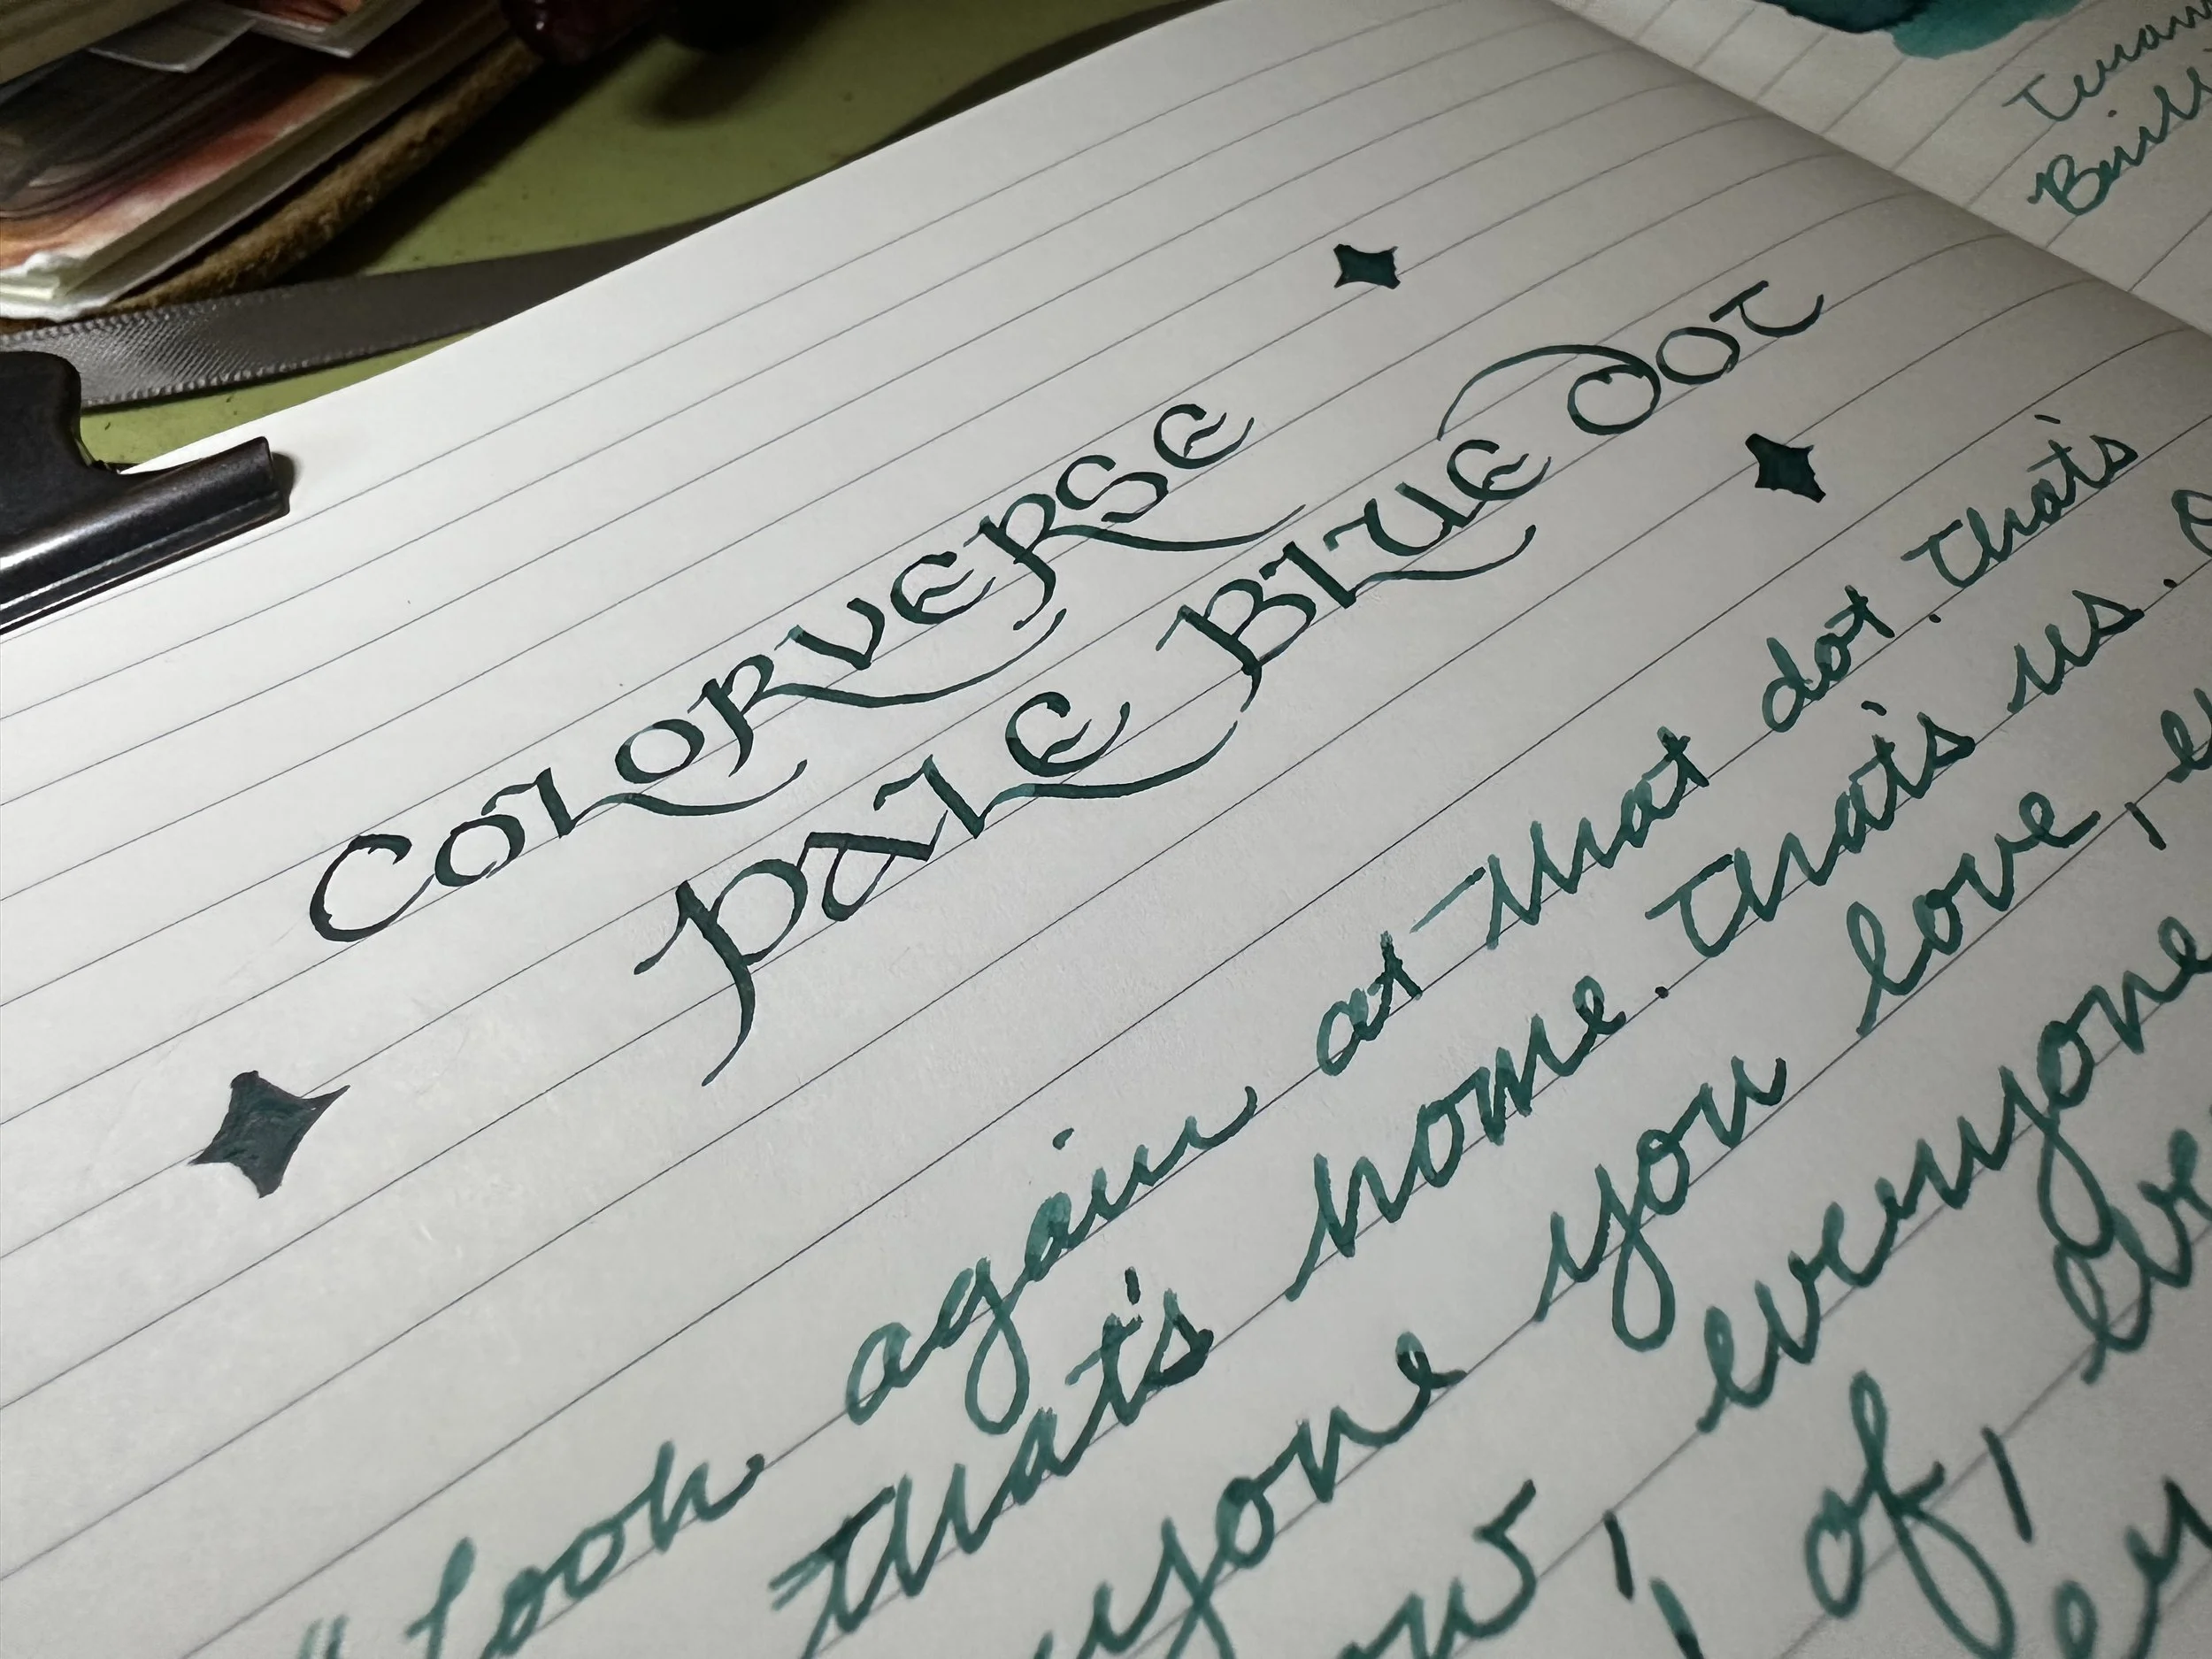 Colorverse
Pale Blue Dot
"Look again at that dot. That's
that's home. That's us.
you love,
everyone
of,